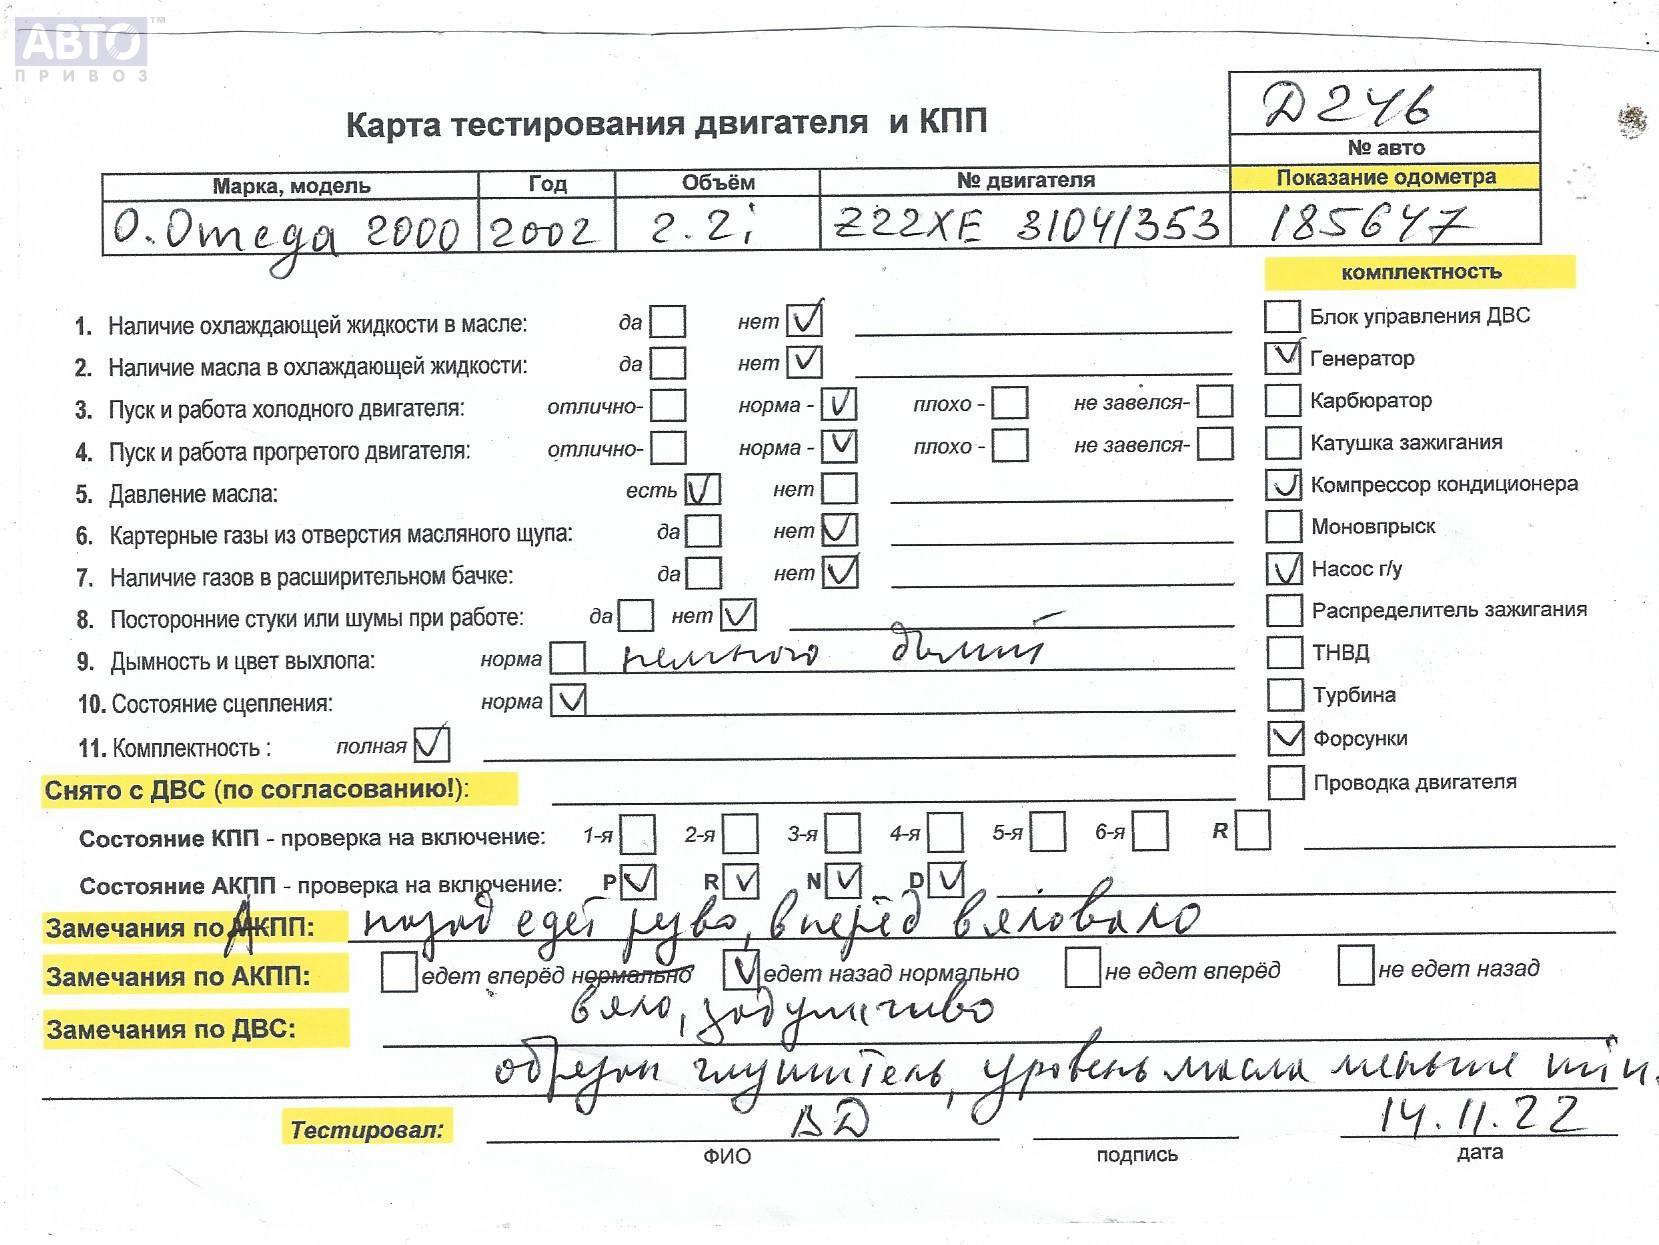 АВТО™
ПРИВОЗ
Д246
№ авто
Карта тестирования двигателя и КПП
Марка, модель Год Объём № двигателя Показание одометра
O. Omega 2000 2002 2.2i Z22XE 3104/353 185647
комплектность
1. Наличие охлаждающей жидкости в масле: да нет Блок управления ДВС
2. Наличие масла в охлаждающей жидкости: да нет Генератор
3. Пуск и работа холодного двигателя: отлично- норма - плохо - не завелся- Карбюратор
4. Пуск и работа прогретого двигателя: отлично- норма - плохо - не завелся- Катушка зажигания
5. Давление масла: есть нет Компрессор кондиционера
6. Картерные газы из отверстия масляного щупа: да нет Моновпрыск
7. Наличие газов в расширительном бачке: да нет Насос г/у
8. Посторонние стуки или шумы при работе: да нет Распределитель зажигания
9. Дымность и цвет выхлопа: норма немного дымит ТНВД
10. Состояние сцепления: норма Турбина
11. Комплектность : полная Форсунки
Снято с ДВС (по согласованию!): Проводка двигателя
Состояние КПП - проверка на включение: 1-я 2-я 3-я 4-я 5-я 6-я R
Состояние АКПП - проверка на включение: P R N D
Замечания по АКПП: назад едет резво, вперёд вяловало
Замечания по АКПП: едет вперёд нормально едет назад нормально не едет вперёд не едет назад
вяло, задумчиво
Замечания по ДВС:
обрезан глушитель, уровень масла меньше min.
Тестировал: ВД 14.11.22
ФИО подпись дата